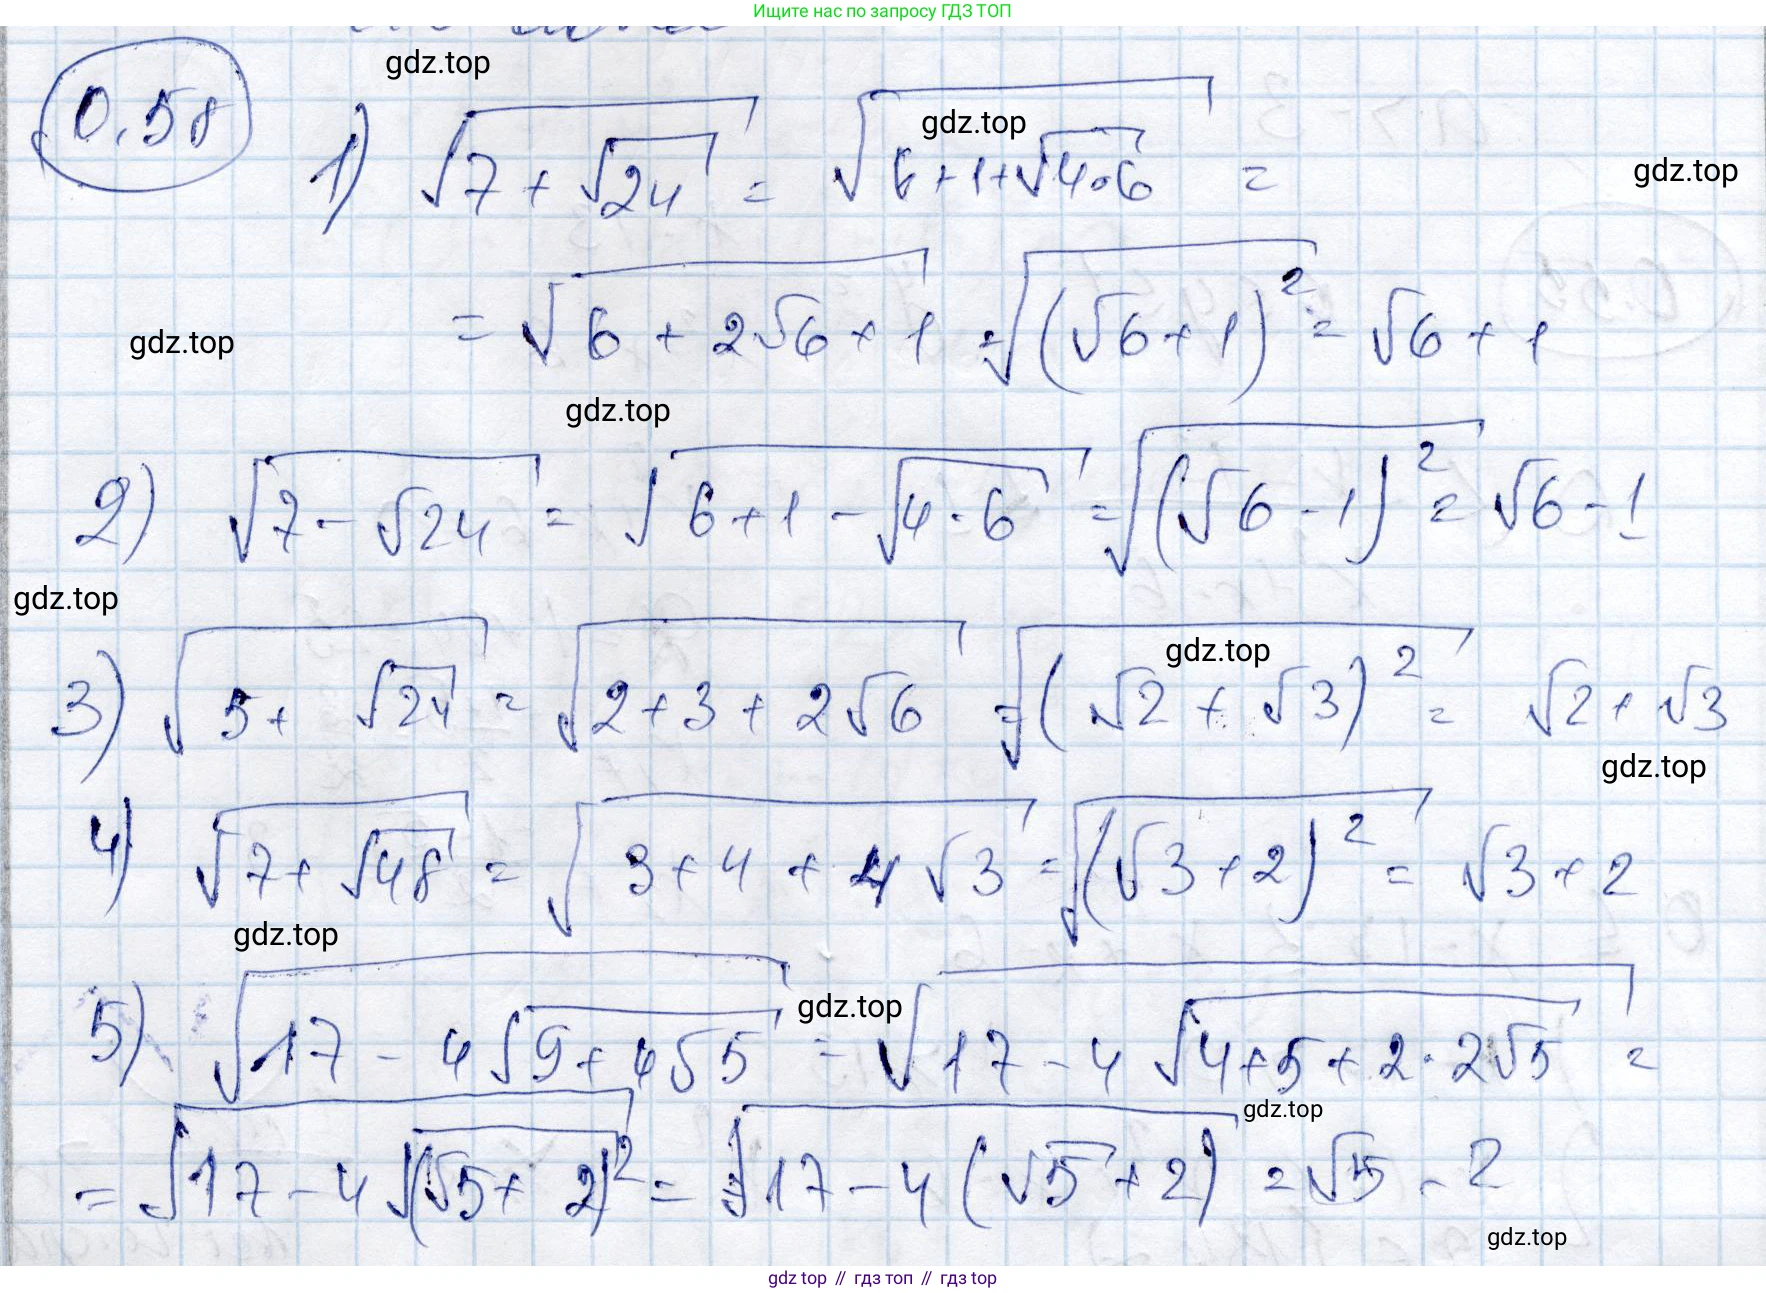 Ищите нас по запросу ГДЗ ТОП
gdz.top
0.58
1) √(7 + √24) = √(6+1+√(4·6)) =
gdz.top
gdz.top
= √(6 + 2√6 + 1) = √((√6 + 1)²) = √6 + 1
gdz.top
gdz.top
2) √(7 - √24) = √(6+1 - √(4·6)) = √((√6 - 1)²) = √6 - 1
gdz.top
3) √(5 + √24) = √(2+3+2√6) = √((√2 + √3)²) = √2 + √3
gdz.top
gdz.top
4) √(7 + √48) = √(3+4+4√3) = √((√3+2)²) = √3 + 2
gdz.top
5) √(17 - 4√(9+4√5)) = √(17 - 4√(4+5+2·2√5)) =
gdz.top
= √(17 - 4√((√5 + 2)²)) = √(17 - 4(√5 + 2)) = √5 - 2
gdz.top
gdz.top
gdz top // гдз топ // гдз top